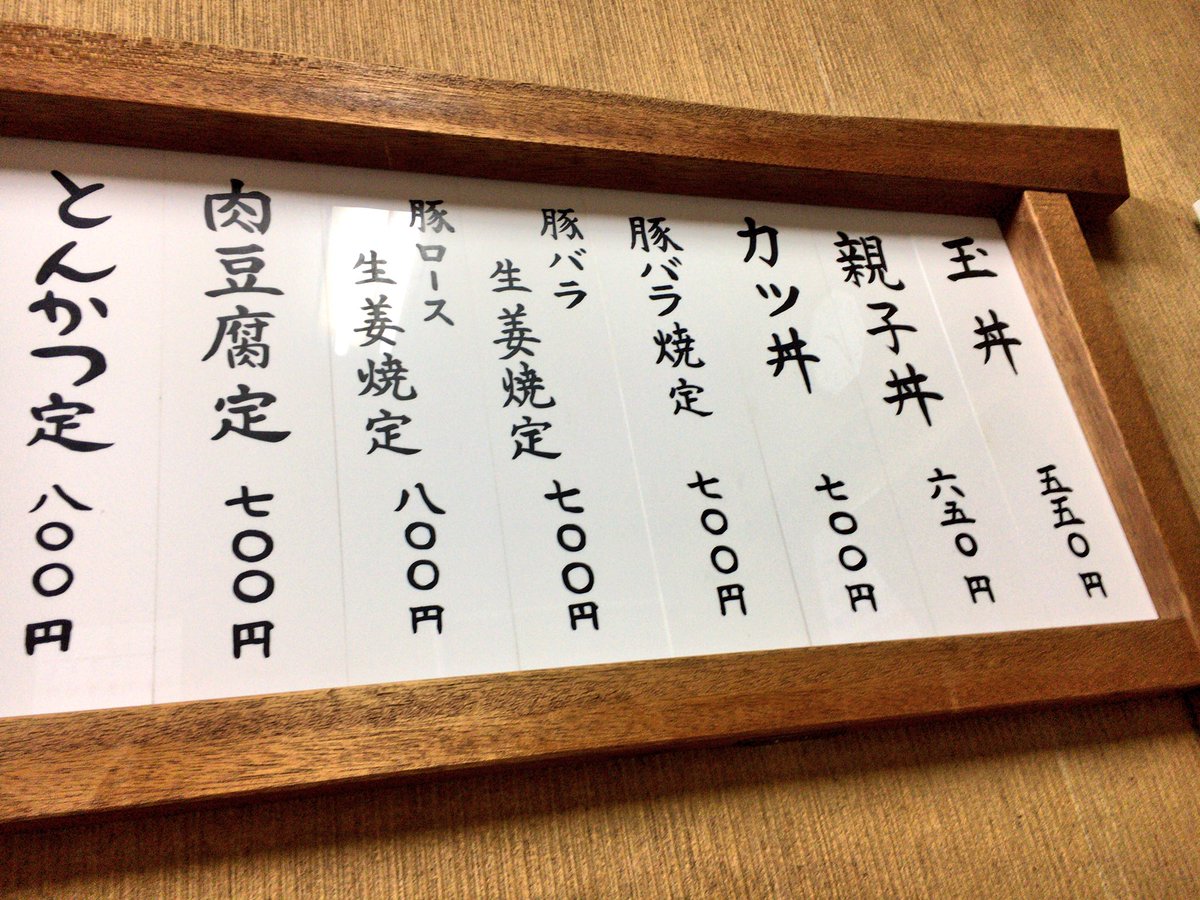 玉丼 五五〇円
親子丼 六五〇円
カツ丼 七〇〇円
豚バラ焼定 七〇〇円
豚バラ
生姜焼定 七〇〇円
豚ロース
生姜焼定 八〇〇円
肉豆腐定 七〇〇円
とんかつ定 八〇〇円